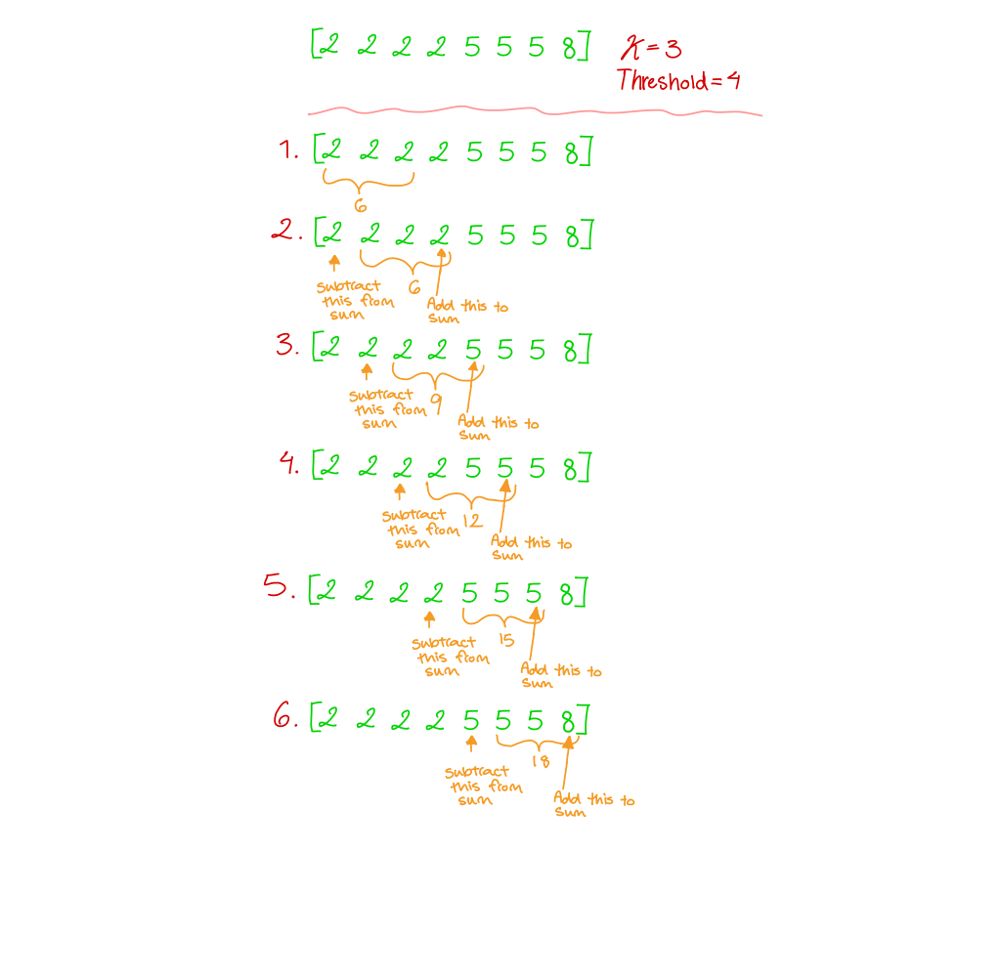 [2 2 2 2 5 5 5 8] K = 3
Threshold = 4
1. [2 2 2 2 5 5 5 8]
6
2. [2 2 2 2 5 5 5 8]
subtract
this from
sum
6
Add this to
sum
3. [2 2 2 2 5 5 5 8]
subtract
this from
sum
9
Add this to
sum
4. [2 2 2 2 5 5 5 8]
subtract
this from
sum
12
Add this to
sum
5. [2 2 2 2 5 5 5 8]
subtract
this from
sum
15
Add this to
sum
6. [2 2 2 2 5 5 5 8]
subtract
this from
sum
18
Add this to
sum